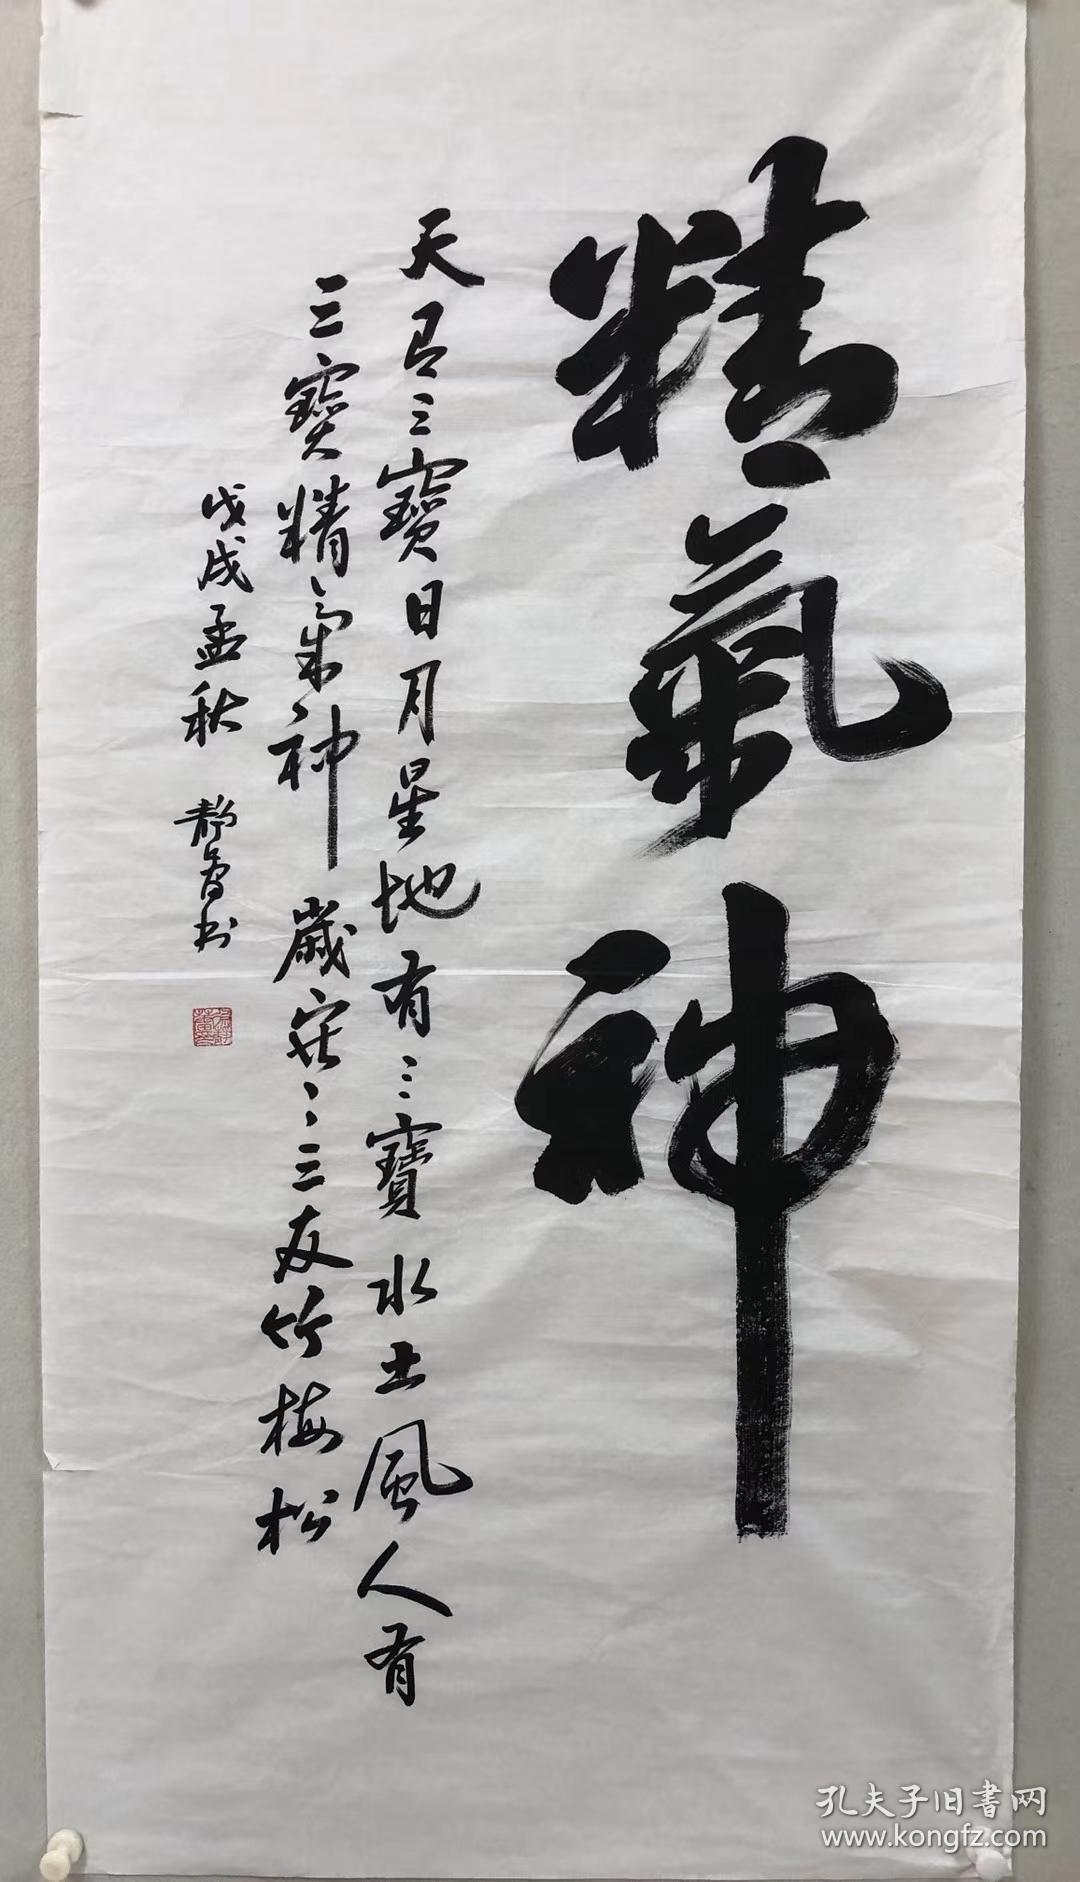 精氣神
天有三寶日月星地有三寶水土風人有
三寶精氣神歲寒三友竹梅松
戊戌孟秋 靜書
孔夫子旧書网
www.kongfz.com